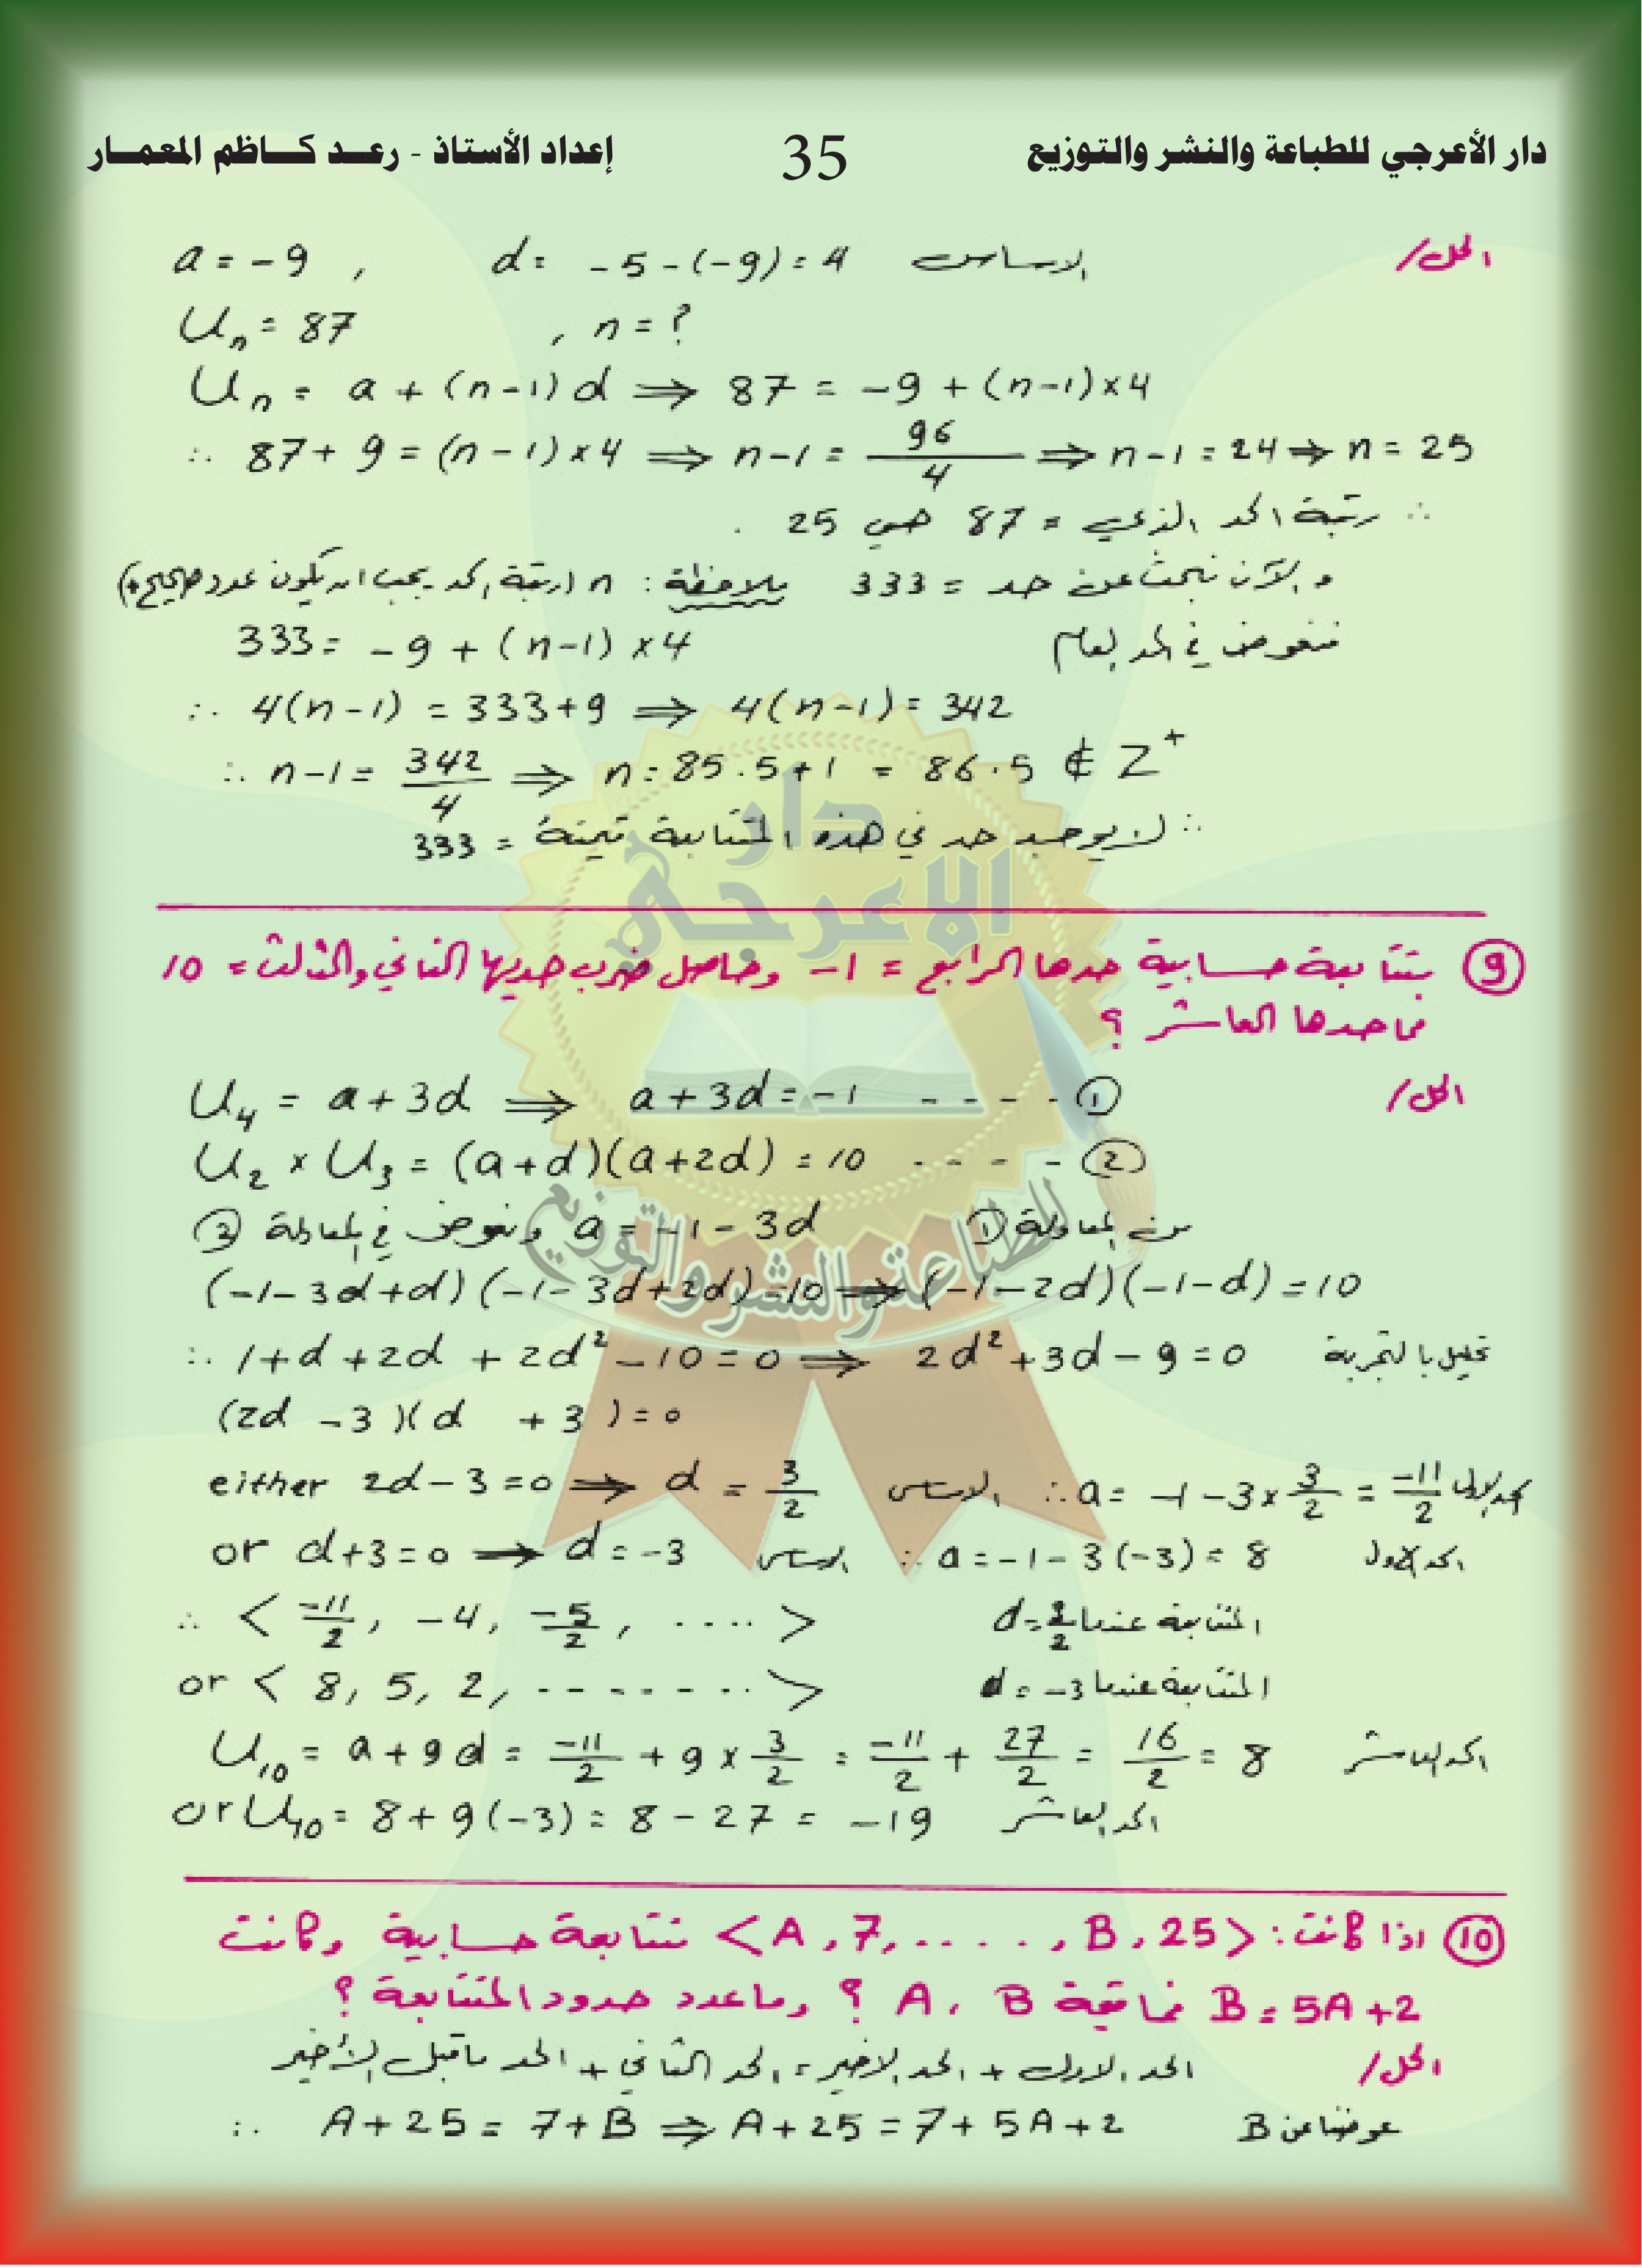 دار الأعرجي للطباعة والنشر والتوزيع 35 إعداد الأستاذ - رعد كاظم المعمار
الحل/ a = -9 , d = -5-(-9) = 4 الاساس
Uₙ = 87 , n = ?
Uₙ = a + (n-1) d ⇒ 87 = -9 + (n-1)×4
∴ 87 + 9 = (n-1)×4 ⇒ n-1 = 96/4 ⇒ n-1 = 24 ⇒ n = 25
∴ رتبة الحد الذي = 87 هي 25 .
والآن نبحث عن حد = 333 ملاحظة: n (رتبة الحد يجب ان يكون عدد صحيح +)
فنعوض في الحد العام 333 = -9 + (n-1) ×4
∴ 4(n-1) = 333+9 ⇒ 4(n-1) = 342
∴ n-1 = 342/4 ⇒ n = 85.5+1 = 86.5 ∉ Z⁺
∴ لا يوجد حد في هذه المتتابعة قيمته = 333
دار
الاعرجي
للطباعة والنشر والتوزيع
⑨ متتابعة حسابية حدها الرابع = -1 وحاصل ضرب حديها الثاني والثالث = 10
فما حدها العاشر ؟
الحل/ U₄ = a+3d ⇒ a+3d = -1 ---- ①
U₂ × U₃ = (a+d)(a+2d) = 10 ---- ②
من المعادلة ① a = -1-3d ونعوض في المعادلة ②
(-1-3d+d)(-1-3d+2d) = 10 ⇒ (-1-2d)(-1-d) = 10
∴ 1+d+2d+2d²-10 = 0 ⇒ 2d²+3d-9 = 0 تحلل بالتجربة
(2d -3)(d +3) = 0
either 2d-3 = 0 ⇒ d = 3/2 الاساس ∴ a = -1-3×3/2 = -11/2 الحد الاول
or d+3 = 0 ⇒ d = -3 الاساس ∴ a = -1-3(-3) = 8 الحد الاول
∴ < -11/2, -4, -5/2, ....> المتتابعة عندما d = 3/2
or < 8, 5, 2, -------..> المتتابعة عندما d = -3
U₁₀ = a+9d = -11/2 + 9×3/2 = -11/2 + 27/2 = 16/2 = 8 الحد العاشر
or U₁₀ = 8+9(-3) = 8-27 = -19 الحد العاشر
⑩ اذا كانت: <A,7,.....,B,25> متتابعة حسابية وكانت
B = 5A+2 فما قيمة A، B ؟ وما عدد حدود المتتابعة ؟
الحل/ الحد الاول + الحد الاخير = الحد الثاني + الحد ماقبل الأخير
∴ A+25 = 7+B ⇒ A+25 = 7+5A+2 عوضنا عن B